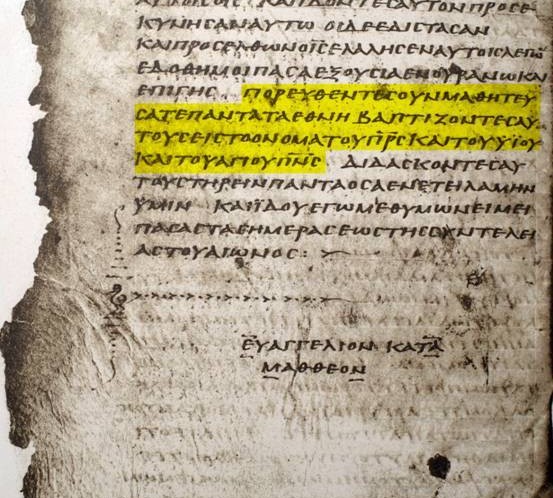 ΚΑΙΙΔΟΝΤΕΣΑΥΤΟΝΠΡΟΣΕ
ΚΥΝΗΣΑΝΑΥΤΩ ΟΙΔΕΕΔΙΣΤΑΣΑΝ
ΚΑΙΠΡΟΣΕΛΘΩΝΟΙ̅Σ̅ΕΛΑΛΗΣΕΝΑΥΤΟΙΣΛΕΓΩ̅
ΕΔΟΘΗΜΟΙΠΑΣΑΕΞΟΥΣΙΑΕΝΟΥΡΑΝΩΚΑΙ
ΕΠΙΓΗΣ ΠΟΡΕΥΘΕΝΤΕΣΟΥΝΜΑΘΗΤΕΥ
ΣΑΤΕΠΑΝΤΑΤΑΕΘΝΗ ΒΑΠΤΙΖΟΝΤΕΣΑΥ
ΤΟΥΣΕΙΣΤΟΟΝΟΜΑΤΟΥΠ̅Ρ̅Σ̅ΚΑΙΤΟΥΥΙΟΥ
ΚΑΙΤΟΥΑΓΙΟΥΠ̅Ν̅Σ̅ ΔΙΔΑΣΚΟΝΤΕΣΑΥ
ΤΟΥΣΤΗΡΕΙΝΠΑΝΤΑΟΣΑΕΝΕΤΕΙΛΑΜΗΝ
ΫΜΙΝ ΚΑΙΪΔΟΥΕΓΩΜΕΘΥΜΩΝΕΙΜΕΙ
ΠΑΣΑΣΤΑΣΗΜΕΡΑΣΕΩΣΤΗΣΣΥΝΤΕΛΕΙ
ΑΣΤΟΥΑΙΩΝΟΣ:
ΕΥΑΓΓΕΛΙΟΝ ΚΑΤΑ
ΜΑΘΘΕΟΝ